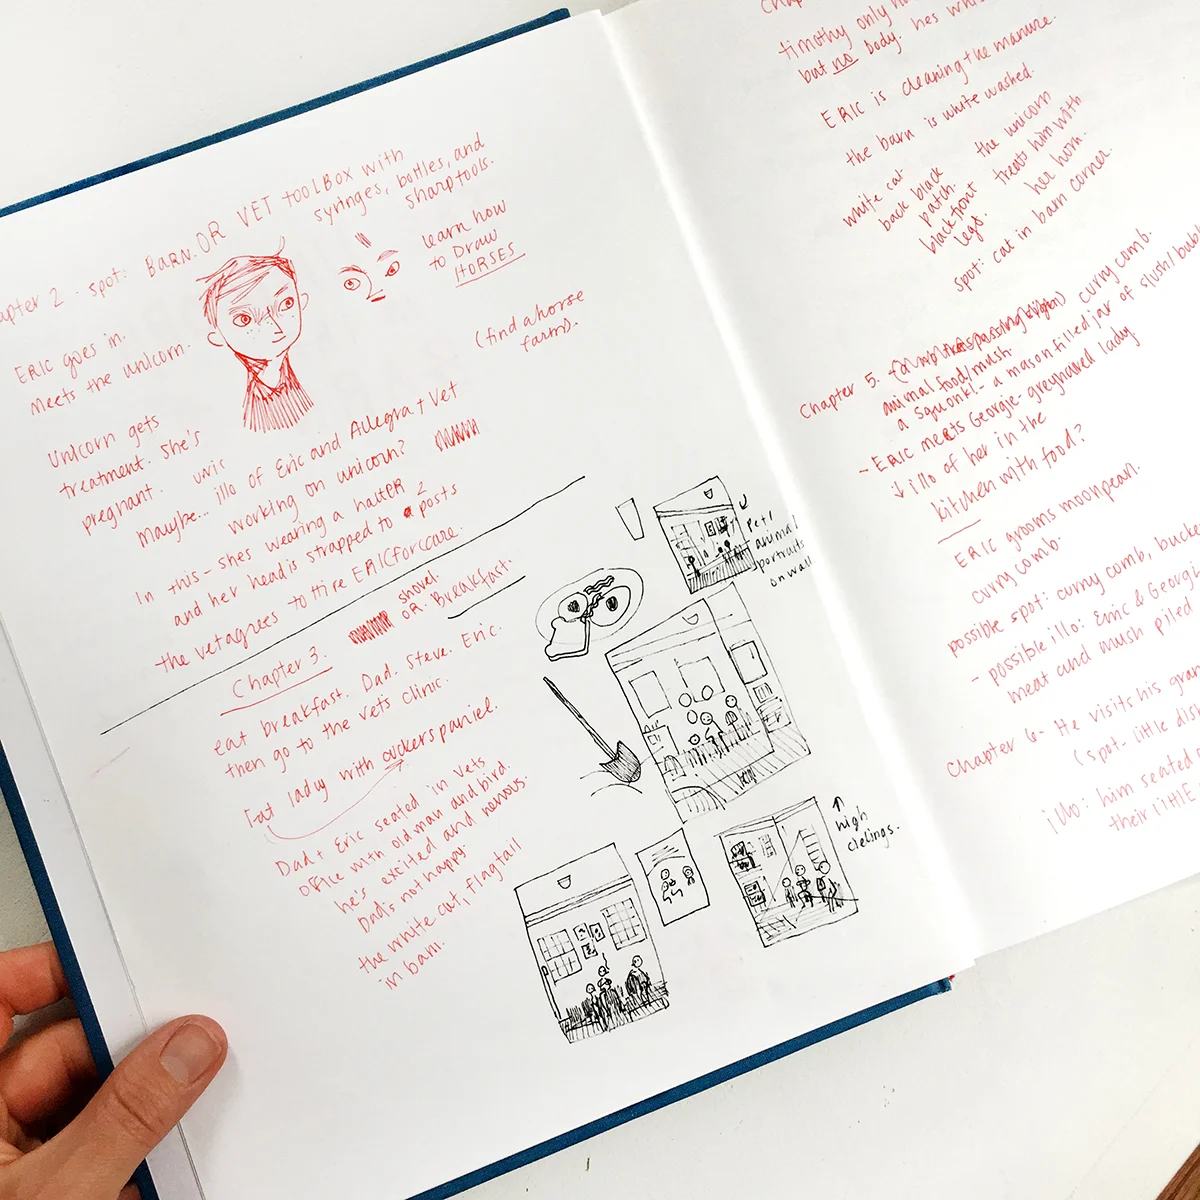 Chapter 2 - spot: BARN. OR VET toolBox with
syringes, bottles, and
sharp tools.
learn how
to Draw
HORSES
(find a horse
farm).
ERIC goes in.
Meets the unicorn.
Unicorn gets
treatment. She's
pregnant.
Maybe... illo of Eric and Allegra + Vet
working on unicorn?
In this - shes wearing a haltER
and her head is strapped to 2 posts
the vet agrees to Hire ERIC for care.
Chapter 3.
shovel
OR. Breakfast.
eat breakfast. Dad. Steve. Eric.
then go to the vets clinic.
Fat lady with cockerspaniel.
Dad + Eric seated in vets
office with old man and bird.
he's excited and nervous.
Dad's not happy.
the white cat, flagtail
in barn.
Pets/
animal
portraits
on wall
high
cielings.
timothy only h
but no body. hes whi
ERIC is cleaning the manure.
the barn is white washed.
white cat
back black
patch.
black front
legs.
the unicorn
treats him with
her horn.
spot: cat in barn corner.
Chapter 5.
curry comb.
animal food/mush.
a squonk! - a mason filled jar of slush/bubb
- ERIC meets Georgie - greyhaired lady
↓ illo of her in the
kitchen with food?
ERIC grooms moonpearl.
curry comb.
possible spot: curry comb, bucke
- possible illo: Eric & Georgi
meat and mush piled
Chapter 6 - He visits his gran
(spot - little dis
illo: him seated
their little